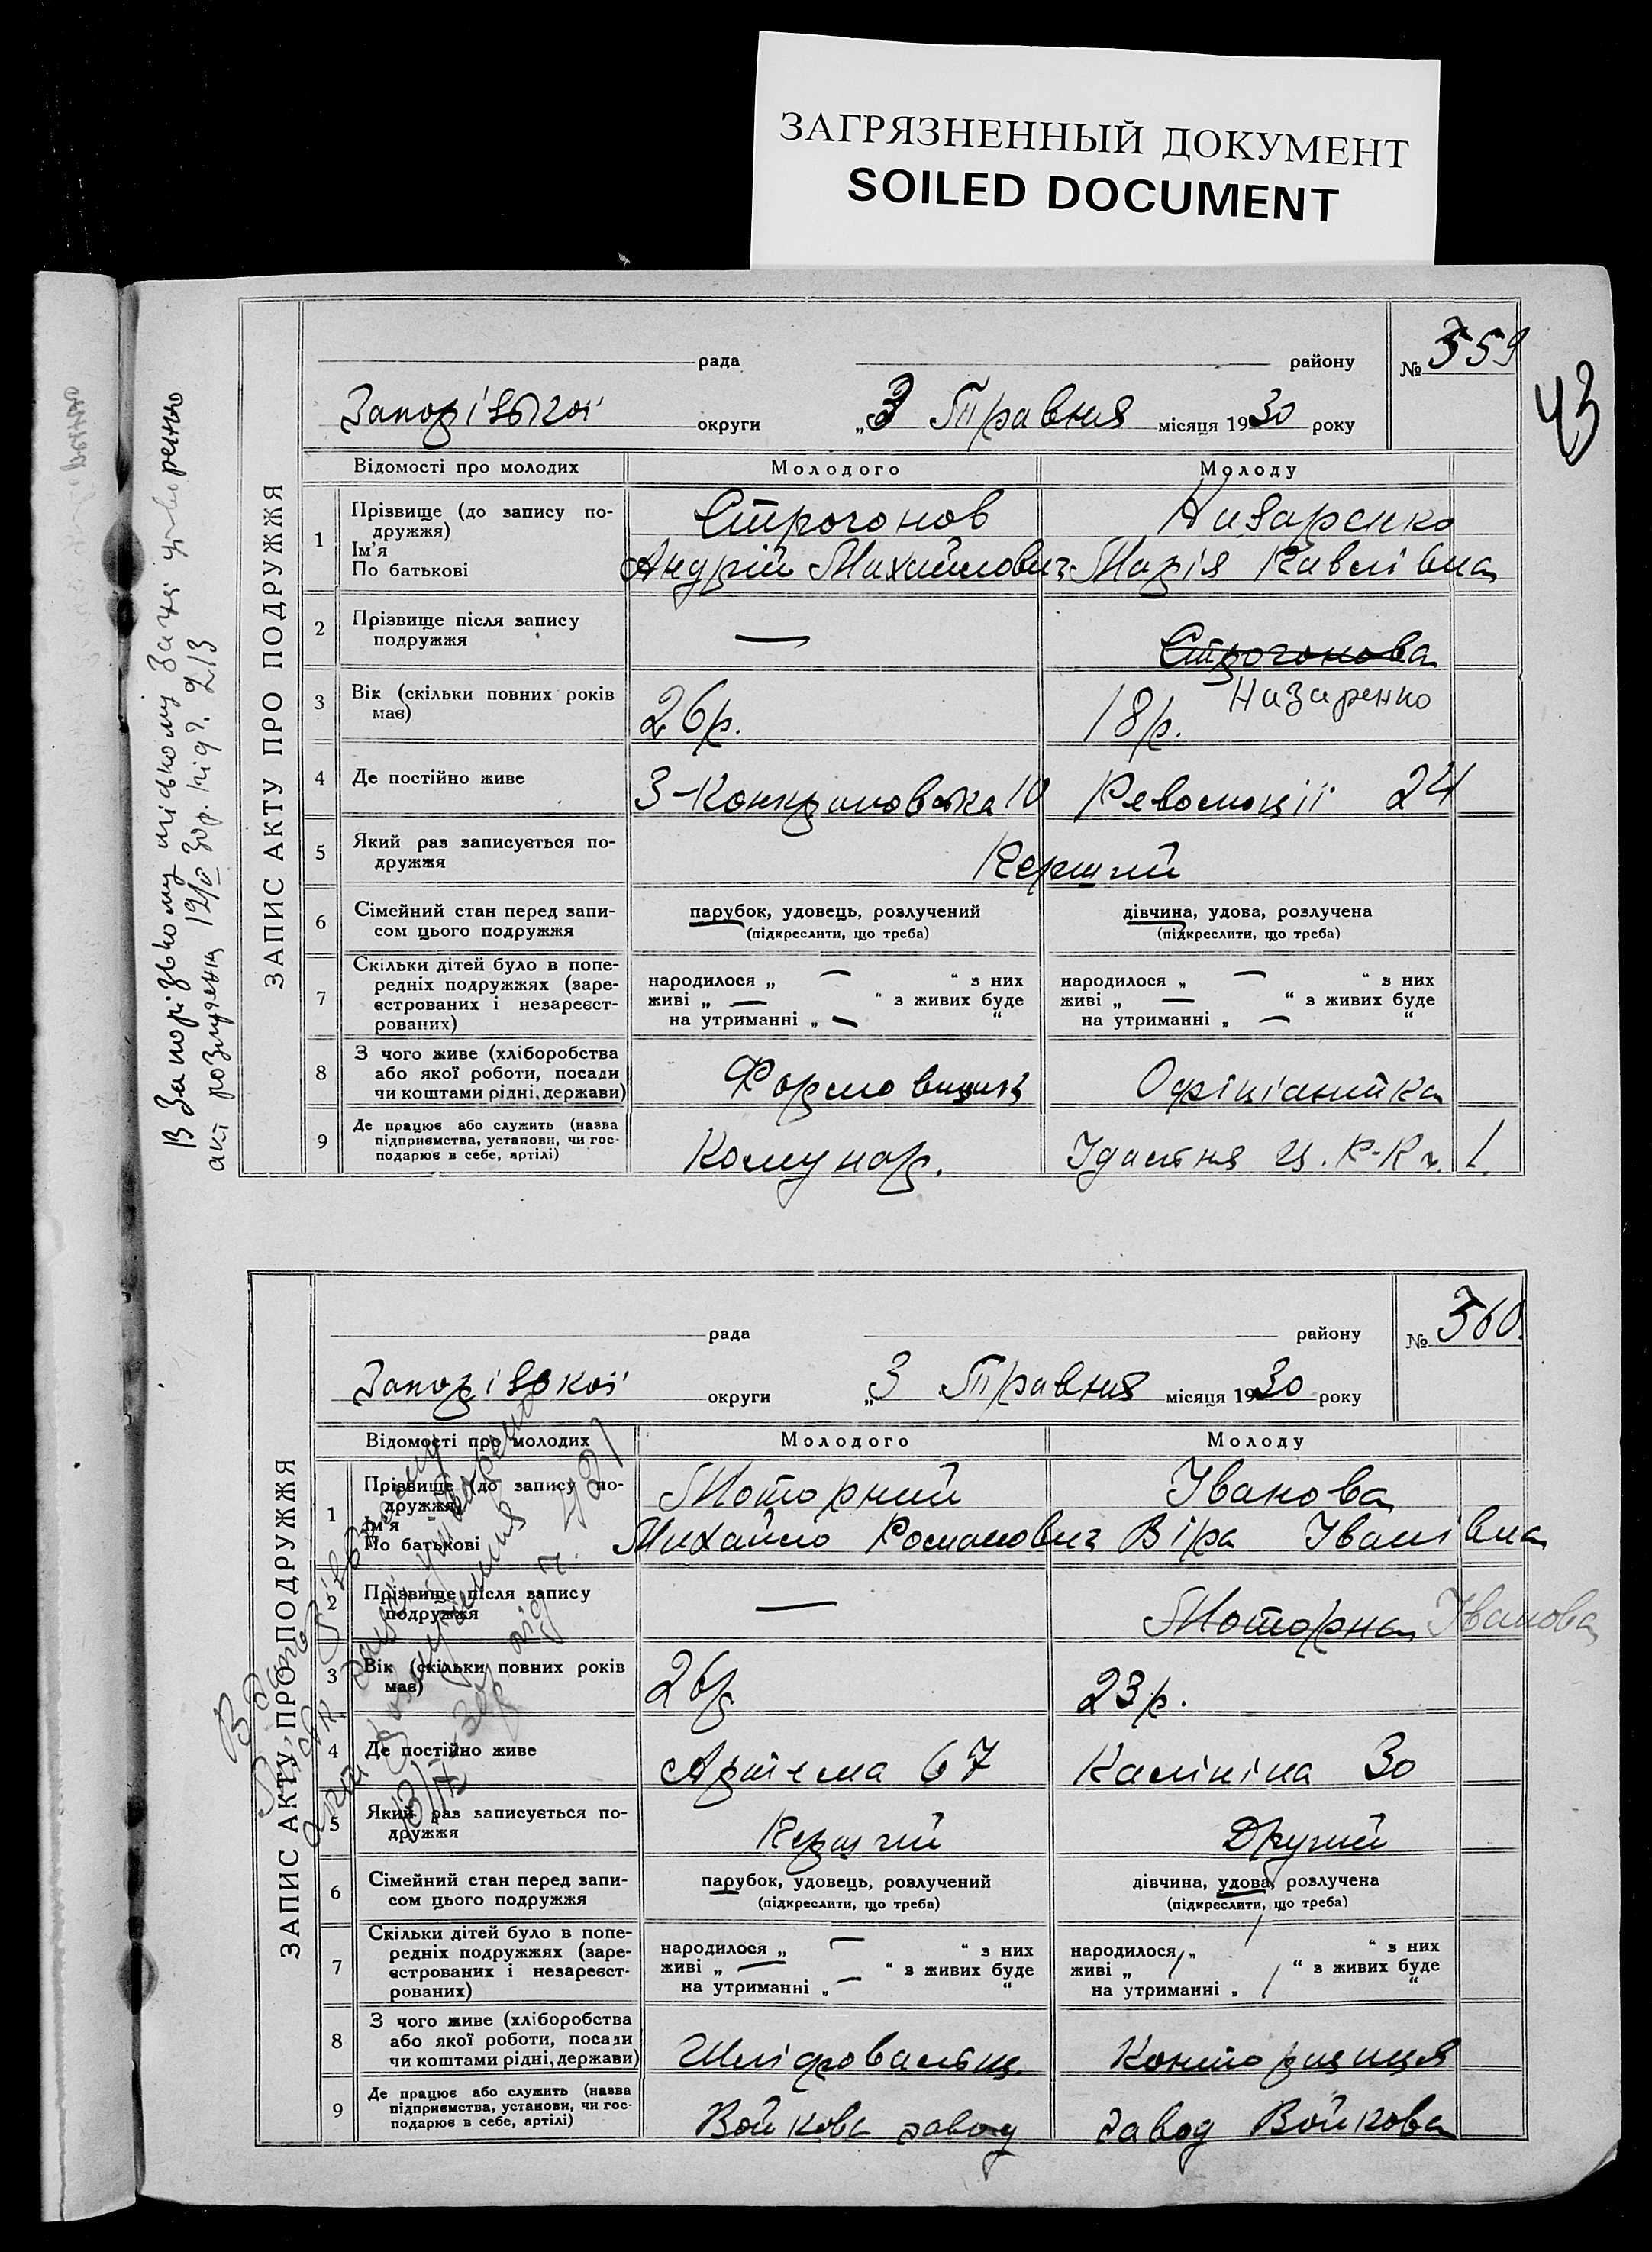 ЗАГРЯЗНЕННЫЙ ДОКУМЕНТ
SOILED DOCUMENT
43
В Запорізькому міському Загсі утворенно
акт розлучення 12/V 30р. під ч. 213
ЗАПИС АКТУ ПРО ПОДРУЖЖЯ
рада району № 359
Запорізької округи „3 Травня місяця 1930 року
Відомості про молодих Молодого Молоду
1 Прізвище (до запису по-
дружжя) Строгонов Назаренко
Ім'я
По батькові Андрій Михайлович Марія Павлівна
2 Прізвище після запису
подружжя — Строгонова
Назаренко
3 Вік (скільки повних років
має) 26р. 18р.
4 Де постійно живе 10 Революції 24
5 Який раз записується по-
дружжя Перший
6 Сімейний стан перед запи-
сом цього подружжя
парубок, удовець, розлучений
(підкреслити, що треба)
дівчина, удова, розлучена
(підкреслити, що треба)
7 Скільки дітей було в попе-
редніх подружжях (заре-
єстрованих і незареєст-
рованих)
народилося „ — “ з них
живі „ — “ з живих буде
на утриманні „ — “
народилося „ — “ з них
живі „ — “ з живих буде
на утриманні „ — “
8 З чого живе (хліборобства
або якої роботи, посади
чи коштами рідні, держави)
Формовщик Офіціантка
9 Де працює або служить (назва
підприємства, установи, чи гос-
подарює в себе, артілі)
Комунар. Їдальня Ц. Р-К ч. 1
ЗАПИС АКТУ ПРО ПОДРУЖЖЯ
рада району № 360
Запорізької округи „3 Травня місяця 1930 року
Відомості про молодих Молодого Молоду
1 Прізвище (до запису по-
дружжя) Моторний Іванова
Ім'я
По батькові Михайло Романович Віра Іванівна
2 Прізвище після запису
подружжя — Моторна Іванова
3 Вік (скільки повних років
має) 26р 23р.
4 Де постійно живе Артема 67 Калініна 30
5 Який раз записується по-
дружжя Перший Другий
6 Сімейний стан перед запи-
сом цього подружжя
парубок, удовець, розлучений
(підкреслити, що треба)
дівчина, удова, розлучена
(підкреслити, що треба)
7 Скільки дітей було в попе-
редніх подружжях (заре-
єстрованих і незареєст-
рованих)
народилося „ — “ з них
живі „ — “ з живих буде
на утриманні „ — “
народилося „ / “ з них
живі „ / “ з живих буде
на утриманні „ / “
8 З чого живе (хліборобства
або якої роботи, посади
чи коштами рідні, держави)
Шліфовальщ. Конторщиця
9 Де працює або служить (назва
підприємства, установи, чи гос-
подарює в себе, артілі)
Войкова завод завод Войкова